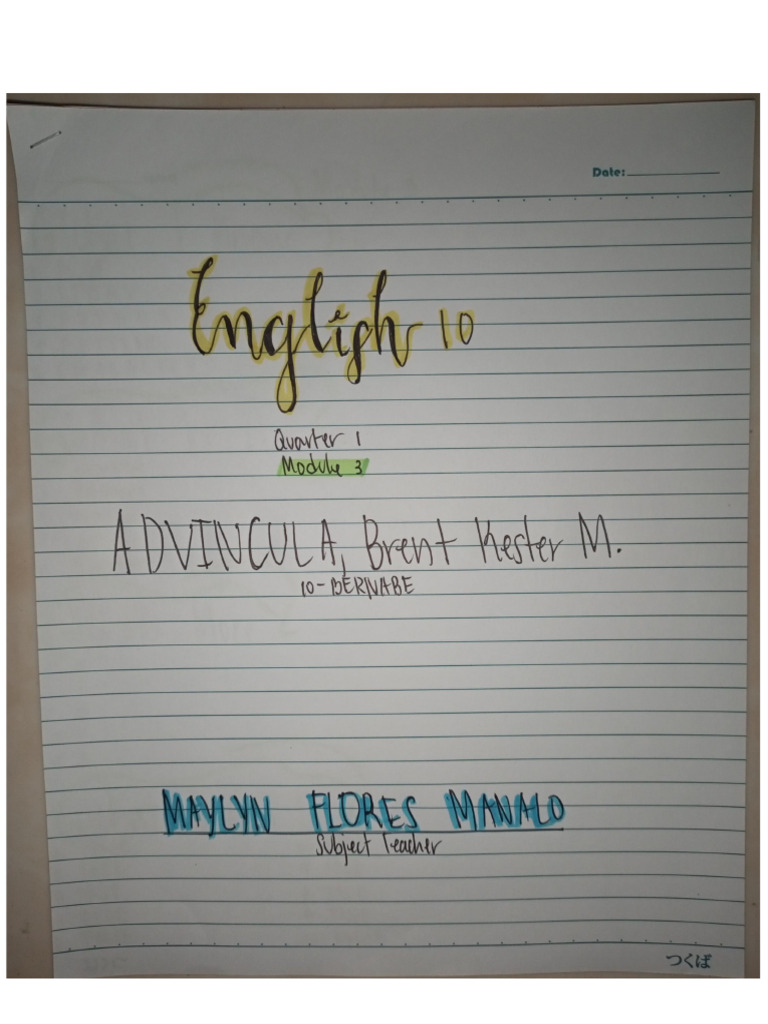 Date:
English 10
Quarter 1
Module 3
ADVINCULA, Brent Kester M.
10-BERNABE
MAYLYN FLORES MANALO
Subject Teacher
つくば